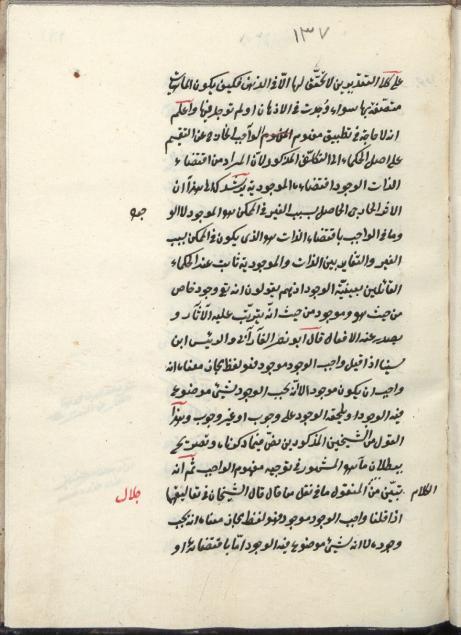 ١٣٧
على كلا التقديرين لا تحقق لها الا في الذهن فكيف يكون الماهيات
متصفة بها سواء وجدت في الاذهان او لم توجد فيها واعلم
انه لا حاجة في تطبيق مفهوم الواجب الخارج عن التقسيم
على اصل الحكماء الى التكلف المذكور لان المراد من اقتضاء
الذات الوجود اقتضاء الموجودية يرشدك الى هذا ان
الامر الخارجي الحاصل بسبب الغير في الممكن هو الموجودية لا الوجود
وما في الواجب باقتضاء الذات هو الذي يكون في الممكن بسبب
الغير والتغاير بين الذات والموجودية ثابت عند الحكماء
القائلين بعينية الوجود اذ هم يقولون انه وجود خاص
من حيث هو وموجود من حيث انه يترتب عليه الآثار و
يصدر عنه الافعال قال ابو نصر الفارابي والرئيس ابن
سينا اذا قيل واجب الوجود موجود فهو لفظ مجاز معناه انه
واجب ان يكون موجودا لا انه يجب الوجود لشيء موضوع
فيه الوجود او يلحقه الوجود على وجوب او غير وجوب وهذا
القول من الشيخين المذكورين نص فيما ذكرناه وتصريح
ببطلان ما هو المشهور في توجيه مفهوم الواجب ثم انه
الكلام
يتبين من المنقول ما في نقل من قال قال الشيخان في تعاليقهما
جلال
اذا قلنا واجب الوجود موجود فهو لفظ مجاز معناه انه يجب
وجوده لا انه لشيء موضوع فيه الوجود اما باقتضائه او